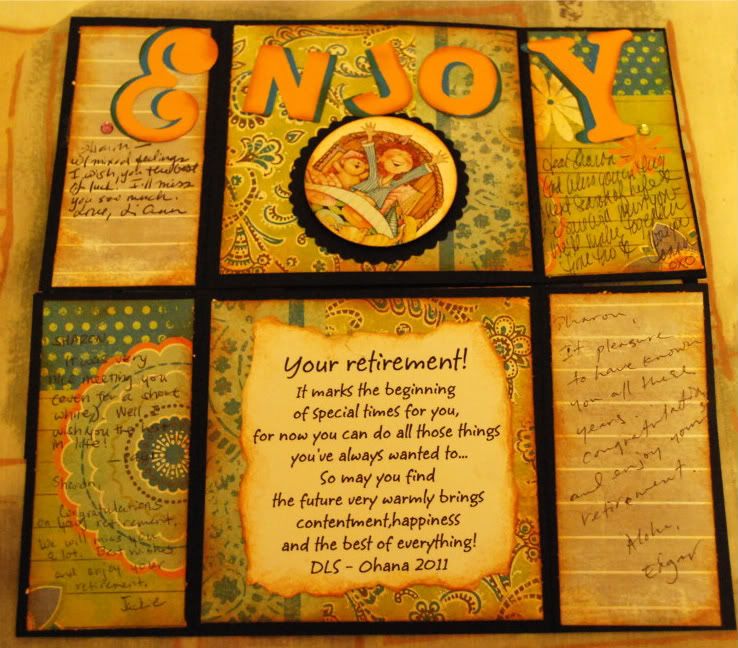 ENJOY
Sharon —
w/ mixed feelings
I wish you the best
of luck! I'll miss
you soo much.
Love, Li Ann
Dear Sharon
God bless you
next
love
OXO
SHAREN,
It was very
nice meeting you
(even for a short
while). Well
wish you the best
in life!
Sharon,
Congratulations
on your retirement,
We will miss you
a lot. Best wishes
and enjoy your
retirement.
Julie
Your retirement!
It marks the beginning
of special times for you,
for now you can do all those things
you've always wanted to...
So may you find
the future very warmly brings
contentment,happiness
and the best of everything!
DLS - Ohana 2011
Sharon,
It pleasure
to have known
you all these
years.
congratulation
and enjoy your
retirement.
Aloha,
Edgar